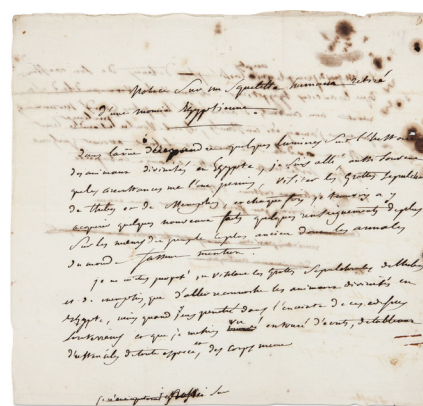 Notice sur un squelette humain retiré
d'une momie Egyptienne.
Dans la vue de répandre quelques lumieres sur l'histoire
des animaux divinisés en Egypte, je suis allé aussi souvent
que les circonstances me l'ont permis, visiter les Grottes sepulcrales
de thebes et de Memphis, et chaque fois je
acquérir quelques nouveaux faits quelques renseignements de plus
sur les mœurs du peuple le plus ancien dont les annales
du monde fassent mention.
je ne m'étais proposé en visitant les grottes sepulcrales de thebes
et de memphis, que d'aller reconnoitre les animaux divinisés en
Egypte, mais quand j'eus pénétré dans l'enceinte de ces
souterreins et que je me entouré
d'ustenciles de toute espece, des corps meme